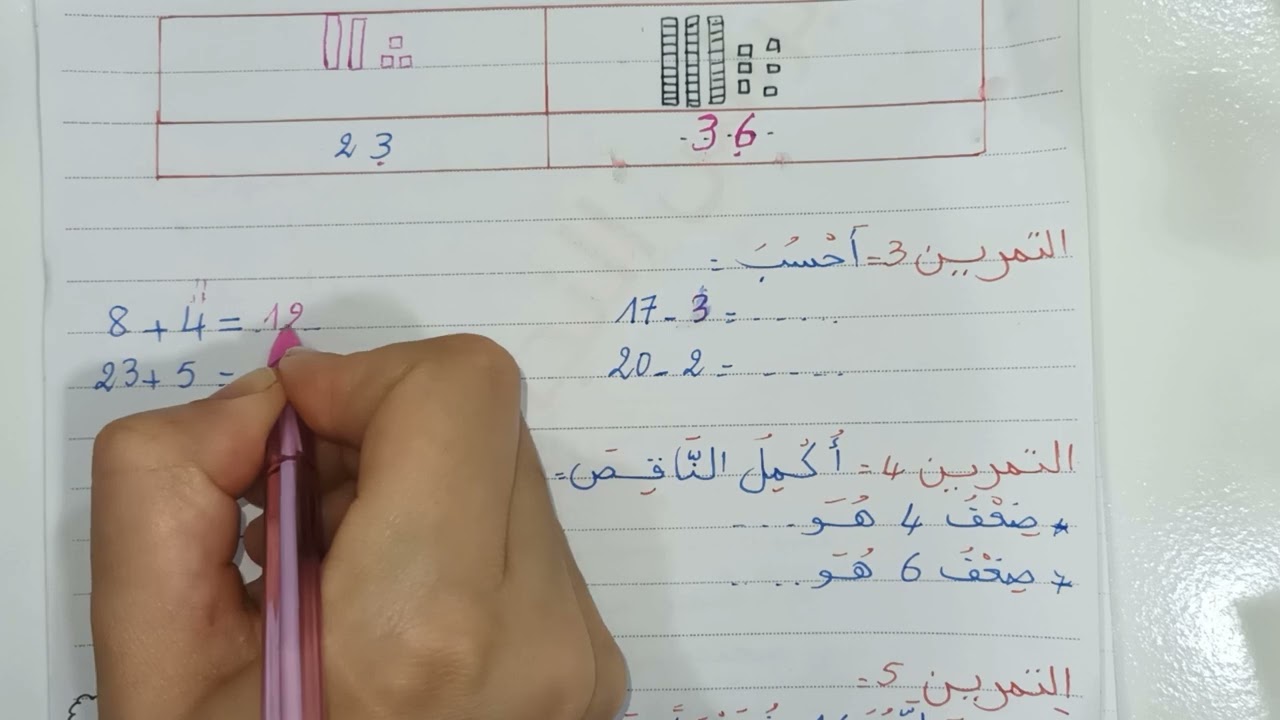 23 36
التمرين 3= أَحْسُبَ :
8 + 4 = 12 17 - 3 = - - - - .
23 + 5 = 20 - 2 = - - - - .
التمرين 4= أُكْمِلَ النَّاقِصَ =
* ضِعْفُ 4 هُوَ ....
* ضِعْفُ 6 هُوَ ....
التمرين 5=